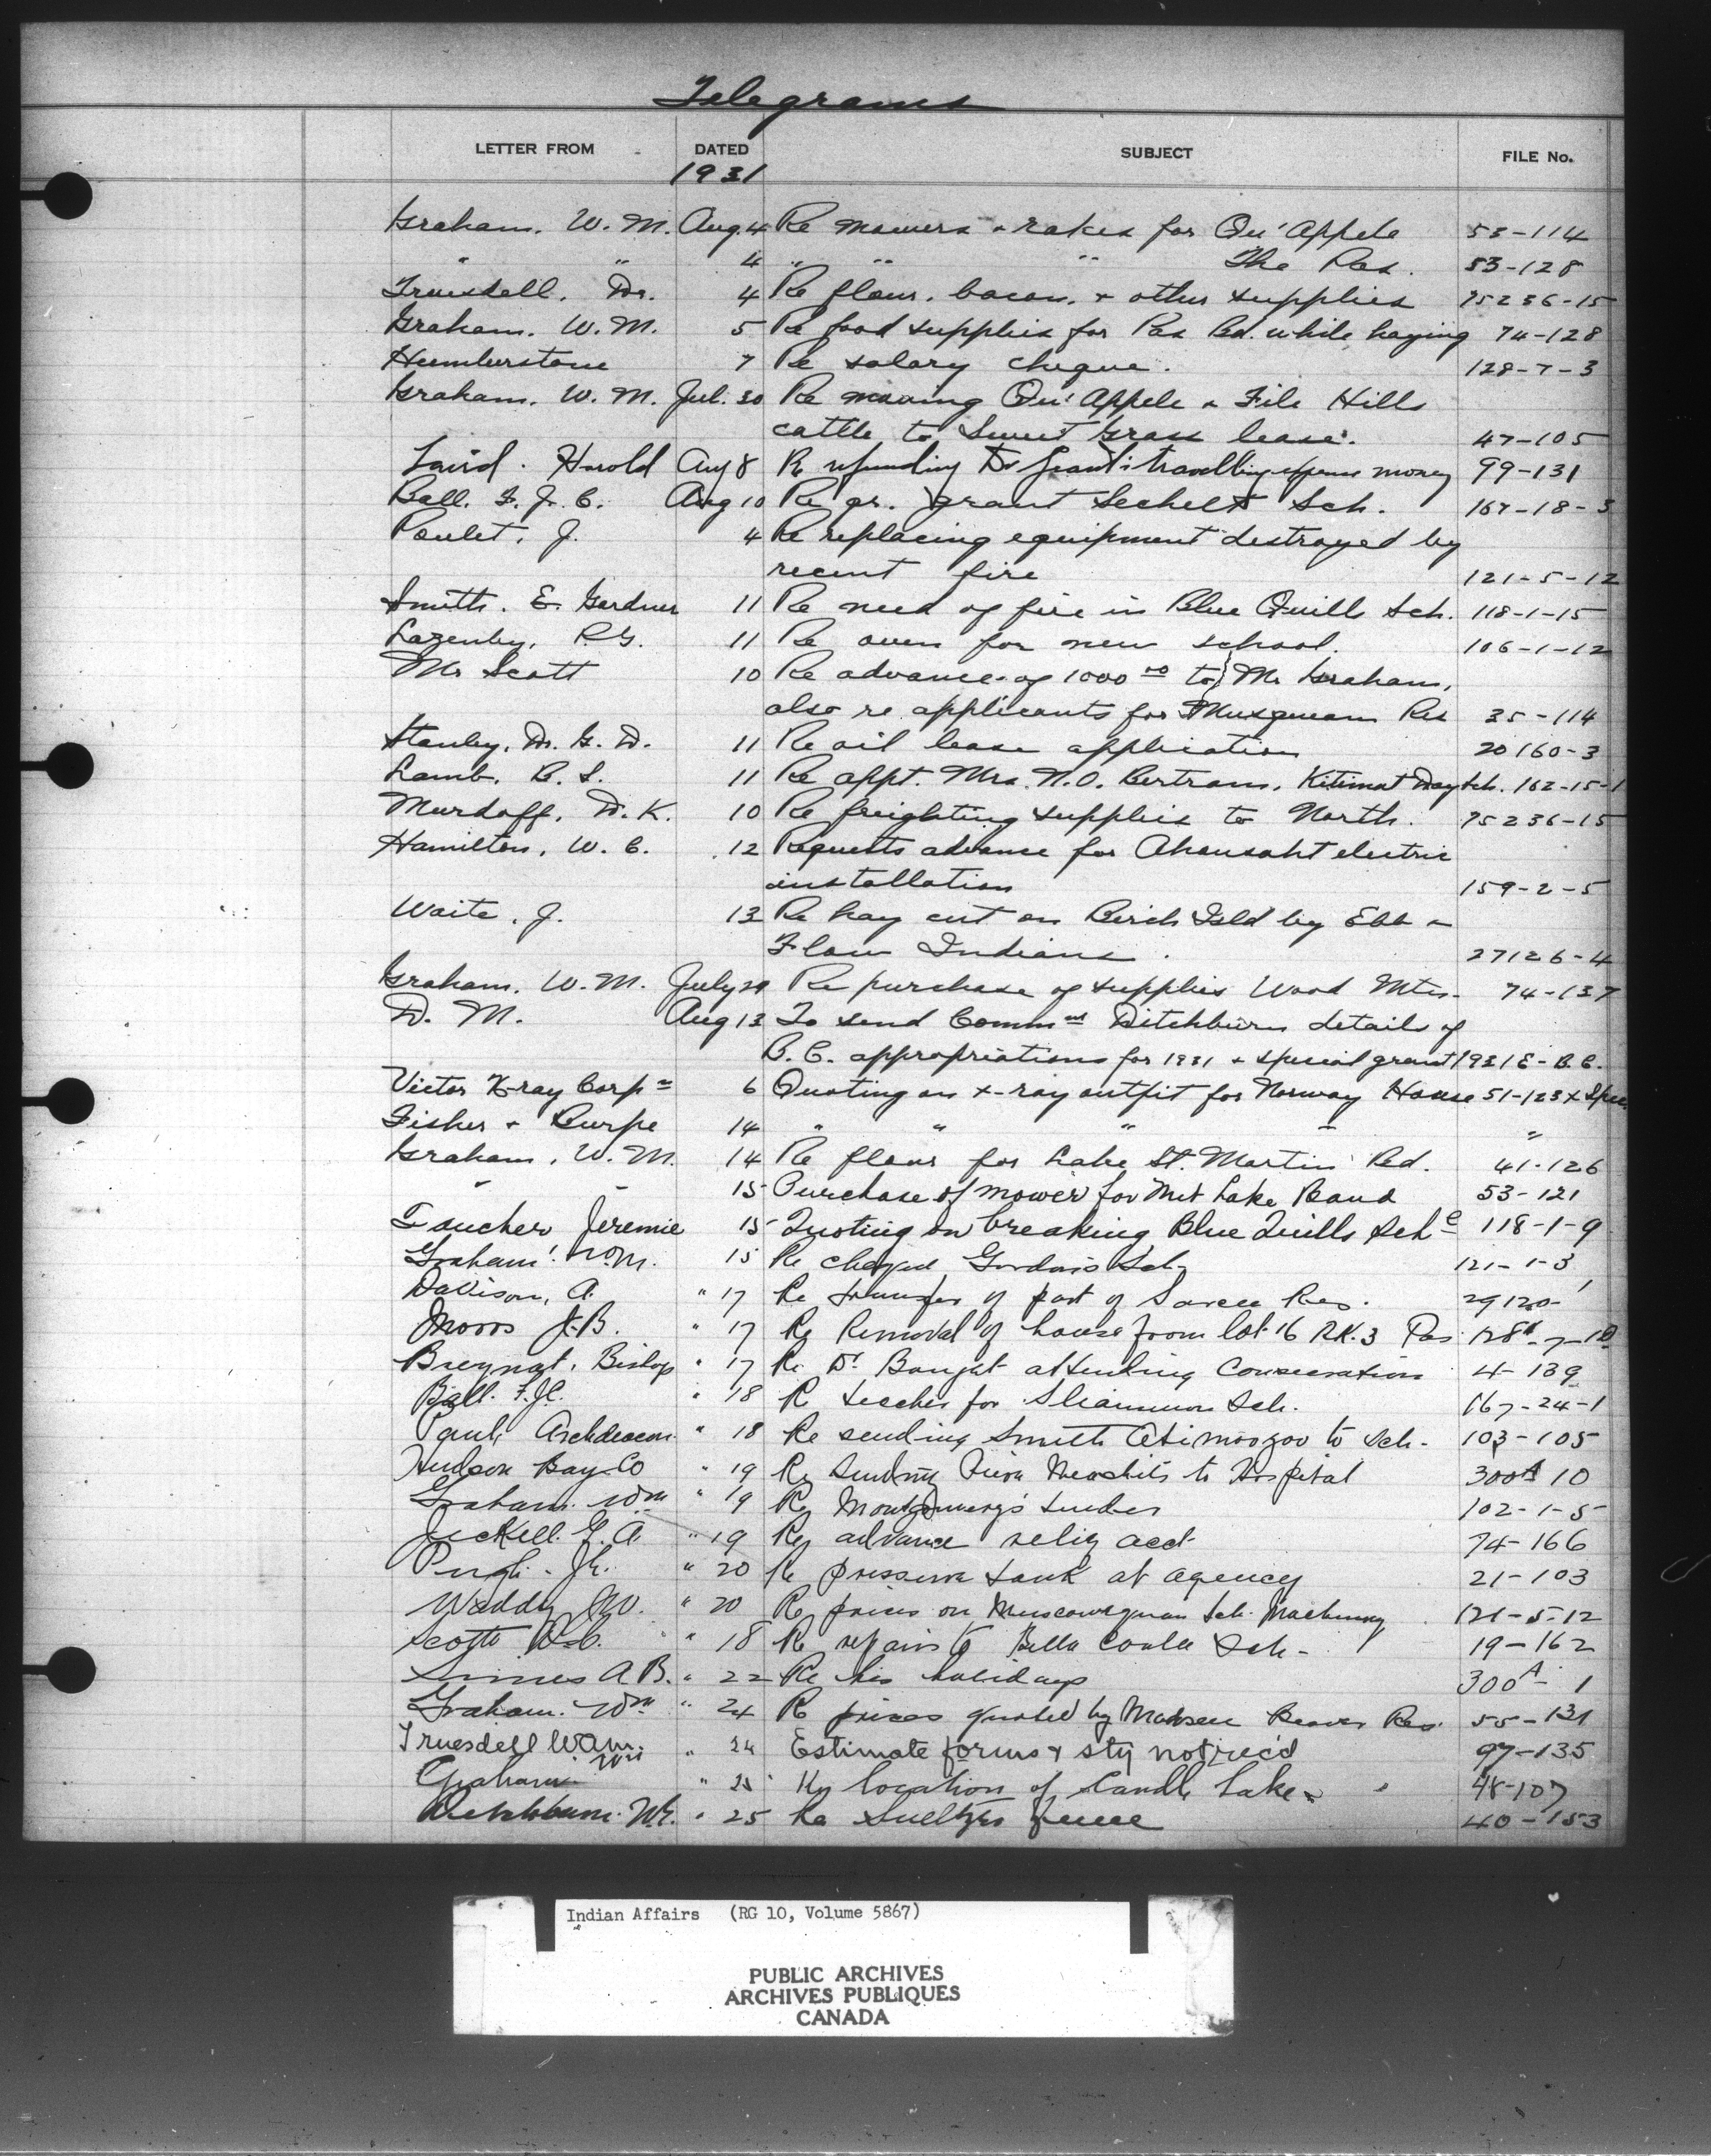 Telegrams
LETTER FROM DATED SUBJECT FILE No.
1931
Graham. W. M. Aug. 4 Re mowers & rakes for Qu'Appele 53-114
" " 4 " " " The Pas. 53-128
Truesdell. Dr. 4 Re flour. bacon. & other supplies 75236-15
Graham. W. M. 5 Re food supplies for Pas Bd. while haying 74-128
Humberstone 7 Re salary cheque. 128-7-3
Graham. W. M. Jul. 30 Re moving Qu'Appele & File Hills
cattle to Sweet Grass lease. 47-105
Laird. Harold Aug 8 Re refunding Dr Grant's travelling expense money 99-131
Ball. F. J. C. Aug 10 Re gr. grant Sechelt Sch. 167-18-3
Poulet, J. 4 Re replacing equipment destroyed by
recent fire 121-5-12
Smith. E. Gardner 11 Re need of fire in Blue Quill Sch. 118-1-15
Lazenby, R.G. 11 Re oven for new school. 106-1-12
Mr Scott 10 Re advance of 1000 00 to Mr Graham,
also re applicants for Musqueam Res 35-114
Stanley, Dr. G. D. 11 Re oil lease application 20160-3
Lamb. B. S. 11 Re appt. Mrs. N.O. Bertram. Kitimat Day Sch. 162-15-1
Murdoff, D. K. 10 Re freighting supplies to North. 75236-15
Hamilton, W. C. 12 Requests advance for Ahousaht electric
installation 159-2-5
Waite, J. 13 Re hay cut on Birch Isld by Ebb &
Flow Indians. 27126-4
Graham. W. M. July 29 Re purchase of supplies Wood Mtn. 74-137
D. M. Aug 13 To send Comm Ditchburn details of
B. C. appropriations for 1931 & special grant 1931 E-B.C.
Victor X-ray Corpn 6 Quoting on x-ray outfit for Norway House 51-123 X Spec
Fisher & Burpe 14 " " " " "
Graham, W. M. 14 Re flour for Lake St. Martin Bd. 41-126
" " 15 Purchase of mower for Lake Band 53-121
Foucher Jeremie 15 Quoting on breaking Blue Quills Sch 118-1-9
Graham. Wm. 15 Re Gordon's Sch 121-1-3
Davison, A. " 17 Re transfer of part of Sarcee Res. 29120-1
Moors J.B. " 17 Re Removal of house from lot 16 Bk. 3 Pas
Breynat, Bishop " 17 Re Dr attending Consecration 4-139
Ball. F.J.C. " 18 Re teacher for Sliammon Sch. 167-24-1
Paul, Archdeacon " 18 Re sending Smith Atimoozoo to Sch- 103-105
Hudson Bay Co " 19 Re Sending to Hospital 300A 10
Graham. Wm " 19 Re Montgomery's tender 102-1-5
Jeckell. G. A " 19 Re advance relig acct 74-166
Pugh. J.E. " 20 Re pressure tank at agency 21-103
Waddy J.W. " 20 Re prices on Muscowequan Sch. Machinery 121-5-12
Scott D.C. " 18 Re repairs to Bella Coola Sch- 19-162
Simes A B. " 22 Re his holidays 300A-1
Graham. Wm " 24 Re prices quoted by Beaver Res. 55-131
Truesdell W.A.M. " 24 Estimate forms & sty not rec'd 97-135
Graham Wm " 25 Re location of Candle Lake 48-107
Ditchburn. W.E. " 25 Re fence 40-153
Indian Affairs (RG 10, Volume 5867)
PUBLIC ARCHIVES
ARCHIVES PUBLIQUES
CANADA